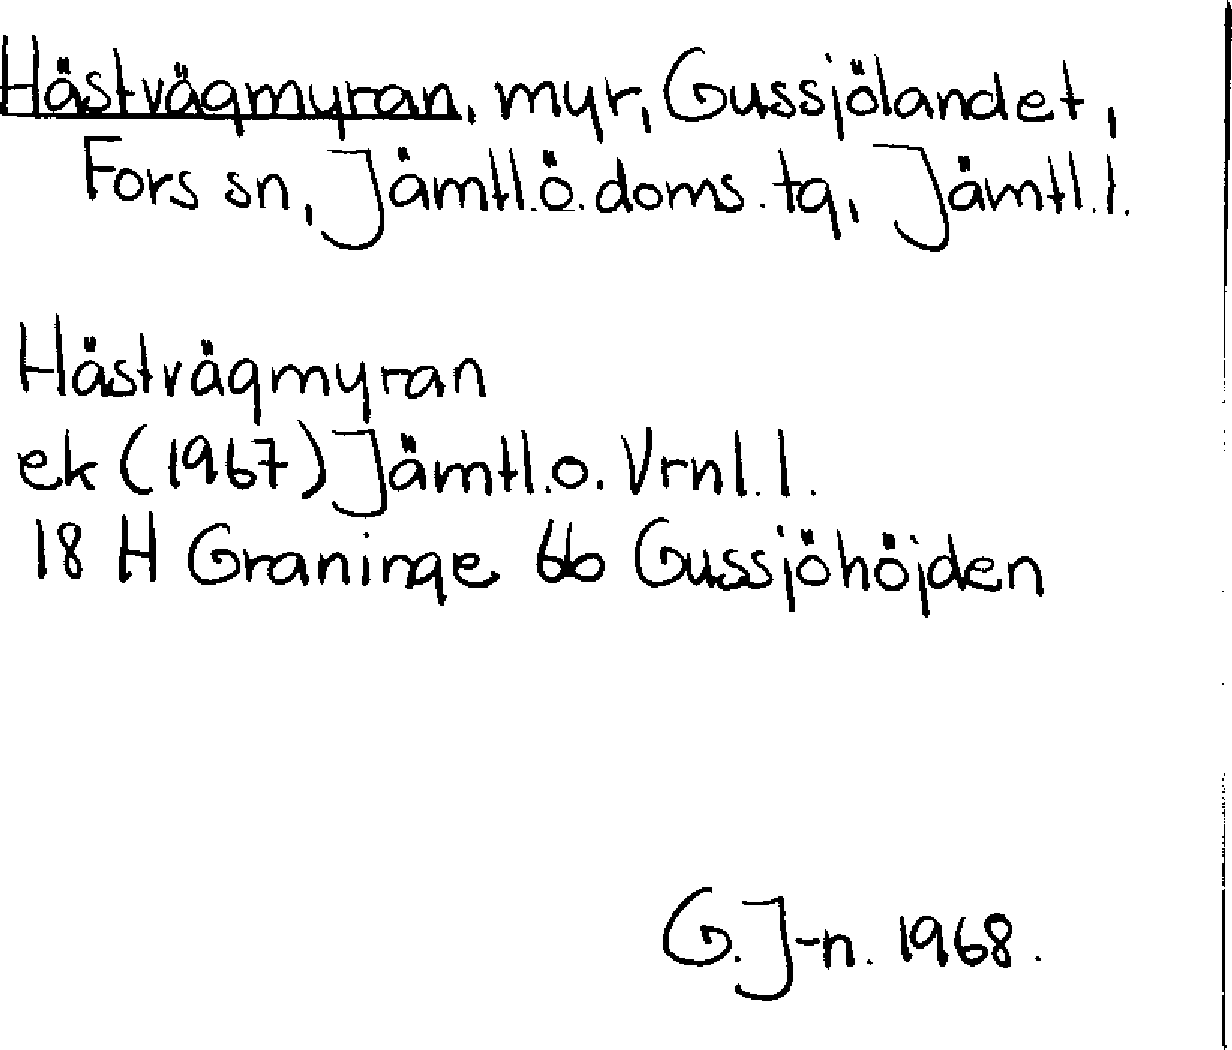 Hästvägmyran, myr, Gussjölandet,
Fors sn, Jämtl.ö.doms.tg, Jämtl.l.
Hästvägmyran
ek (1967) Jämtl.o.Vrnl.l.
18 H Graninge 6b Gussjöhöjden
G.J-n. 1968.